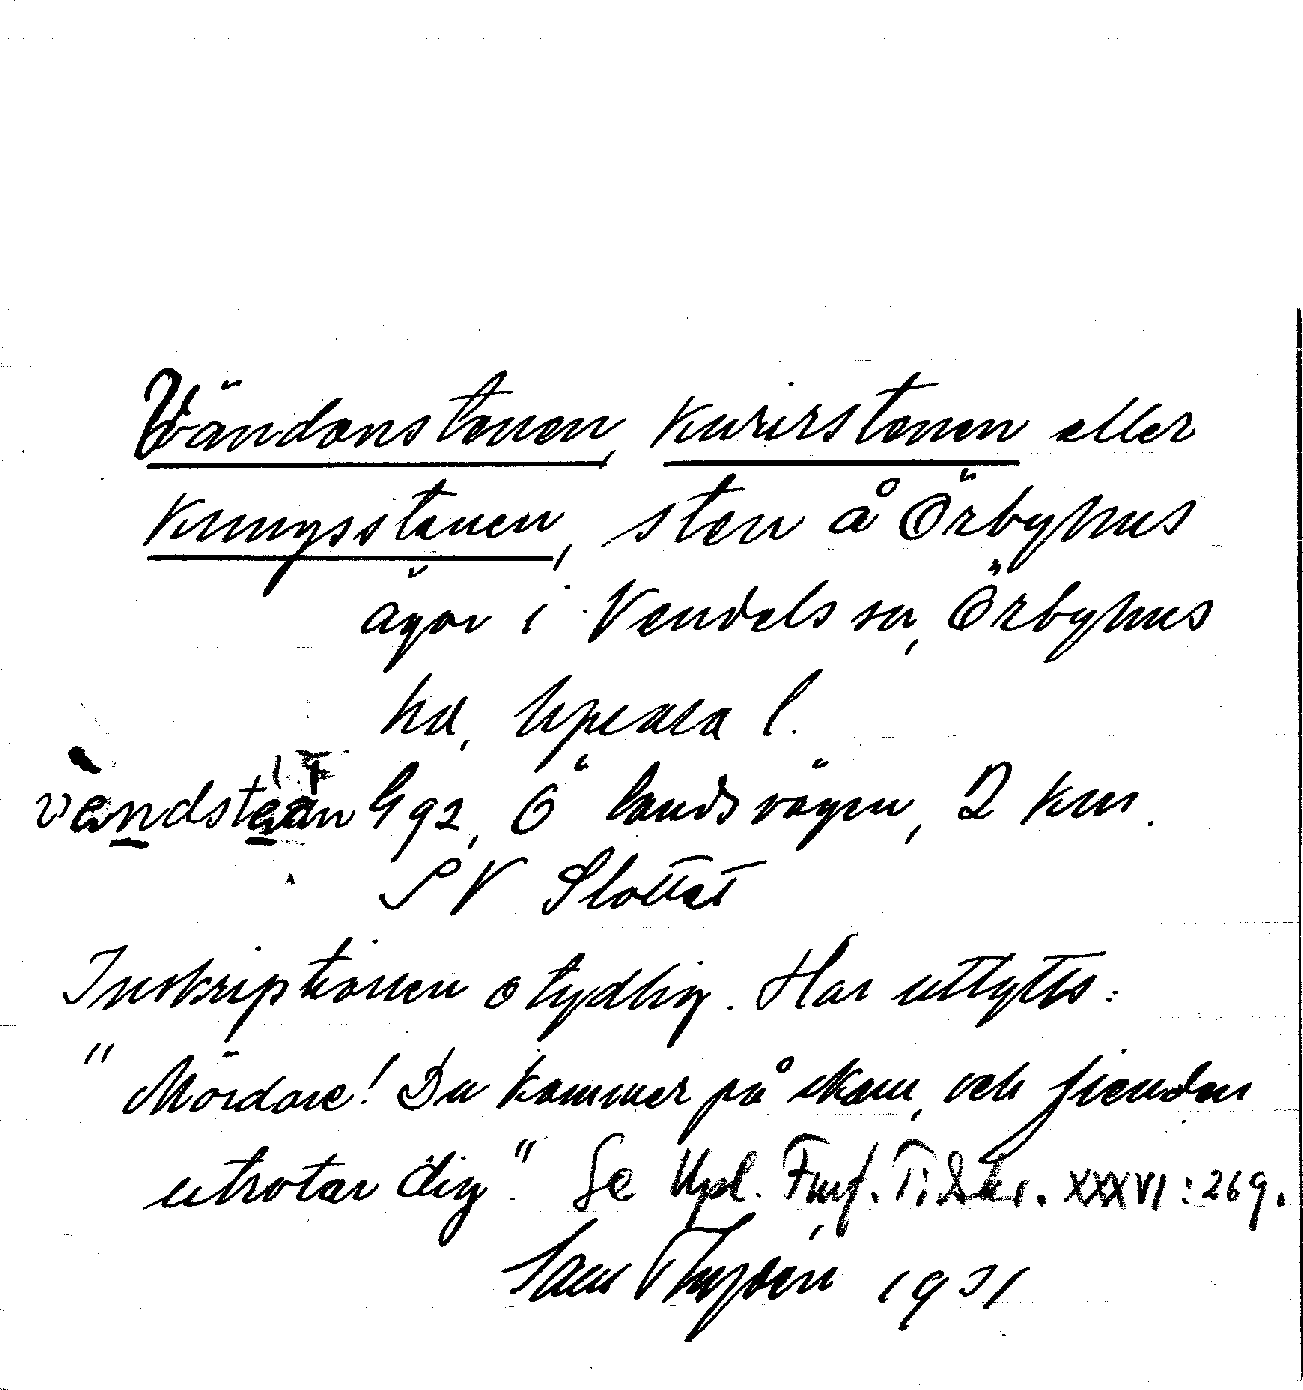 Vändanstenen, Kurirstenen eller
Kungsstenen, sten å Örbyhus
ägor i Vendels sn, Örbyhus
hd, Upsala l.
G 92, Ö landsvägen, 2 km.
SV Slottet
Inskriptionen otydlig. Har uttytts:
"Mördare! Du kommer på skam, och fienden
utrotar dig". Se Upl. Fmf. Tidskr. XXXVI: 269.
Sam Thyden 1931